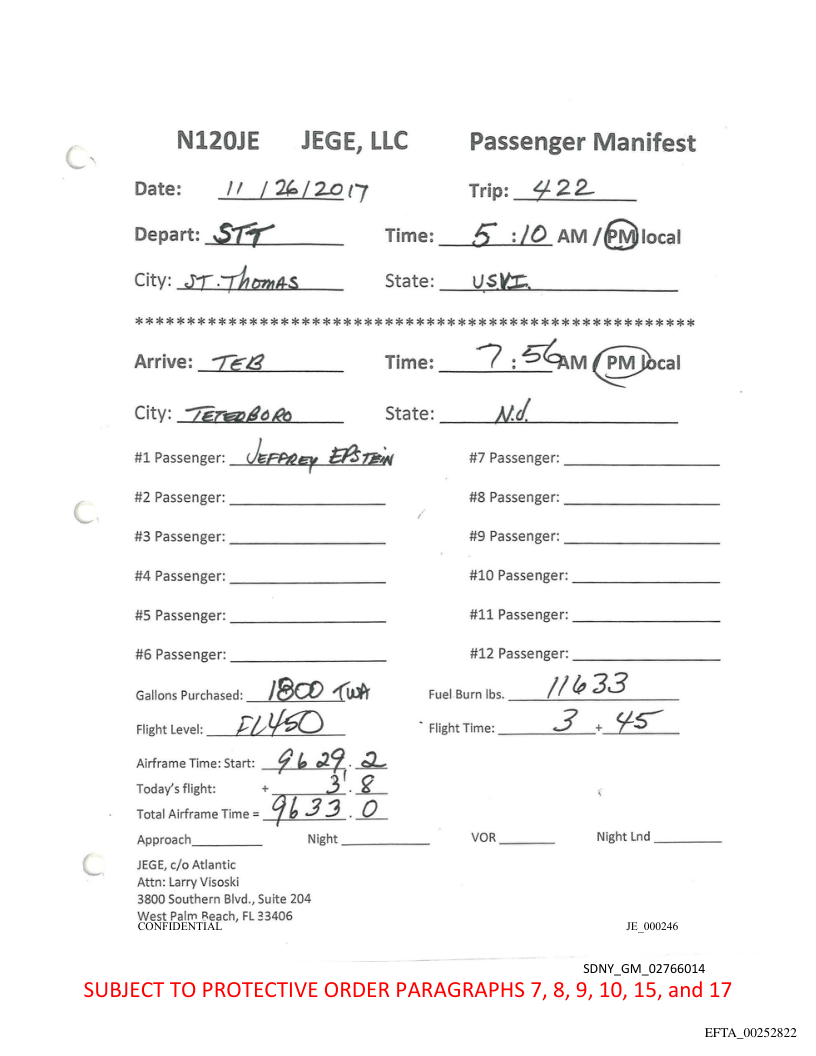 N120JE JEGE, LLC Passenger Manifest
Date: 11/26/2017 Trip: 422
Depart: STT Time: 5:10 AM / PM local
City: ST. THOMAS State: USVI.
******************************************************
Arrive: TEB Time: 7:56 AM / PM local
City: TETEDBORO State: N.J.
#1 Passenger: JEFFREY EPSTEIN #7 Passenger:
#2 Passenger: #8 Passenger:
#3 Passenger: #9 Passenger:
#4 Passenger: #10 Passenger:
#5 Passenger: #11 Passenger:
#6 Passenger: #12 Passenger:
Gallons Purchased: 1800 TWA Fuel Burn lbs. 11633
Flight Level: FL450 Flight Time: 3 + 45
Airframe Time: Start: 9629.2
Today's flight: + 3.8
Total Airframe Time = 9633.0
Approach Night VOR Night Lnd
JEGE, c/o Atlantic
Attn: Larry Visoski
3800 Southern Blvd., Suite 204
West Palm Beach, FL 33406
CONFIDENTIAL JE_000246
SDNY_GM_02766014
SUBJECT TO PROTECTIVE ORDER PARAGRAPHS 7, 8, 9, 10, 15, and 17
EFTA_00252822